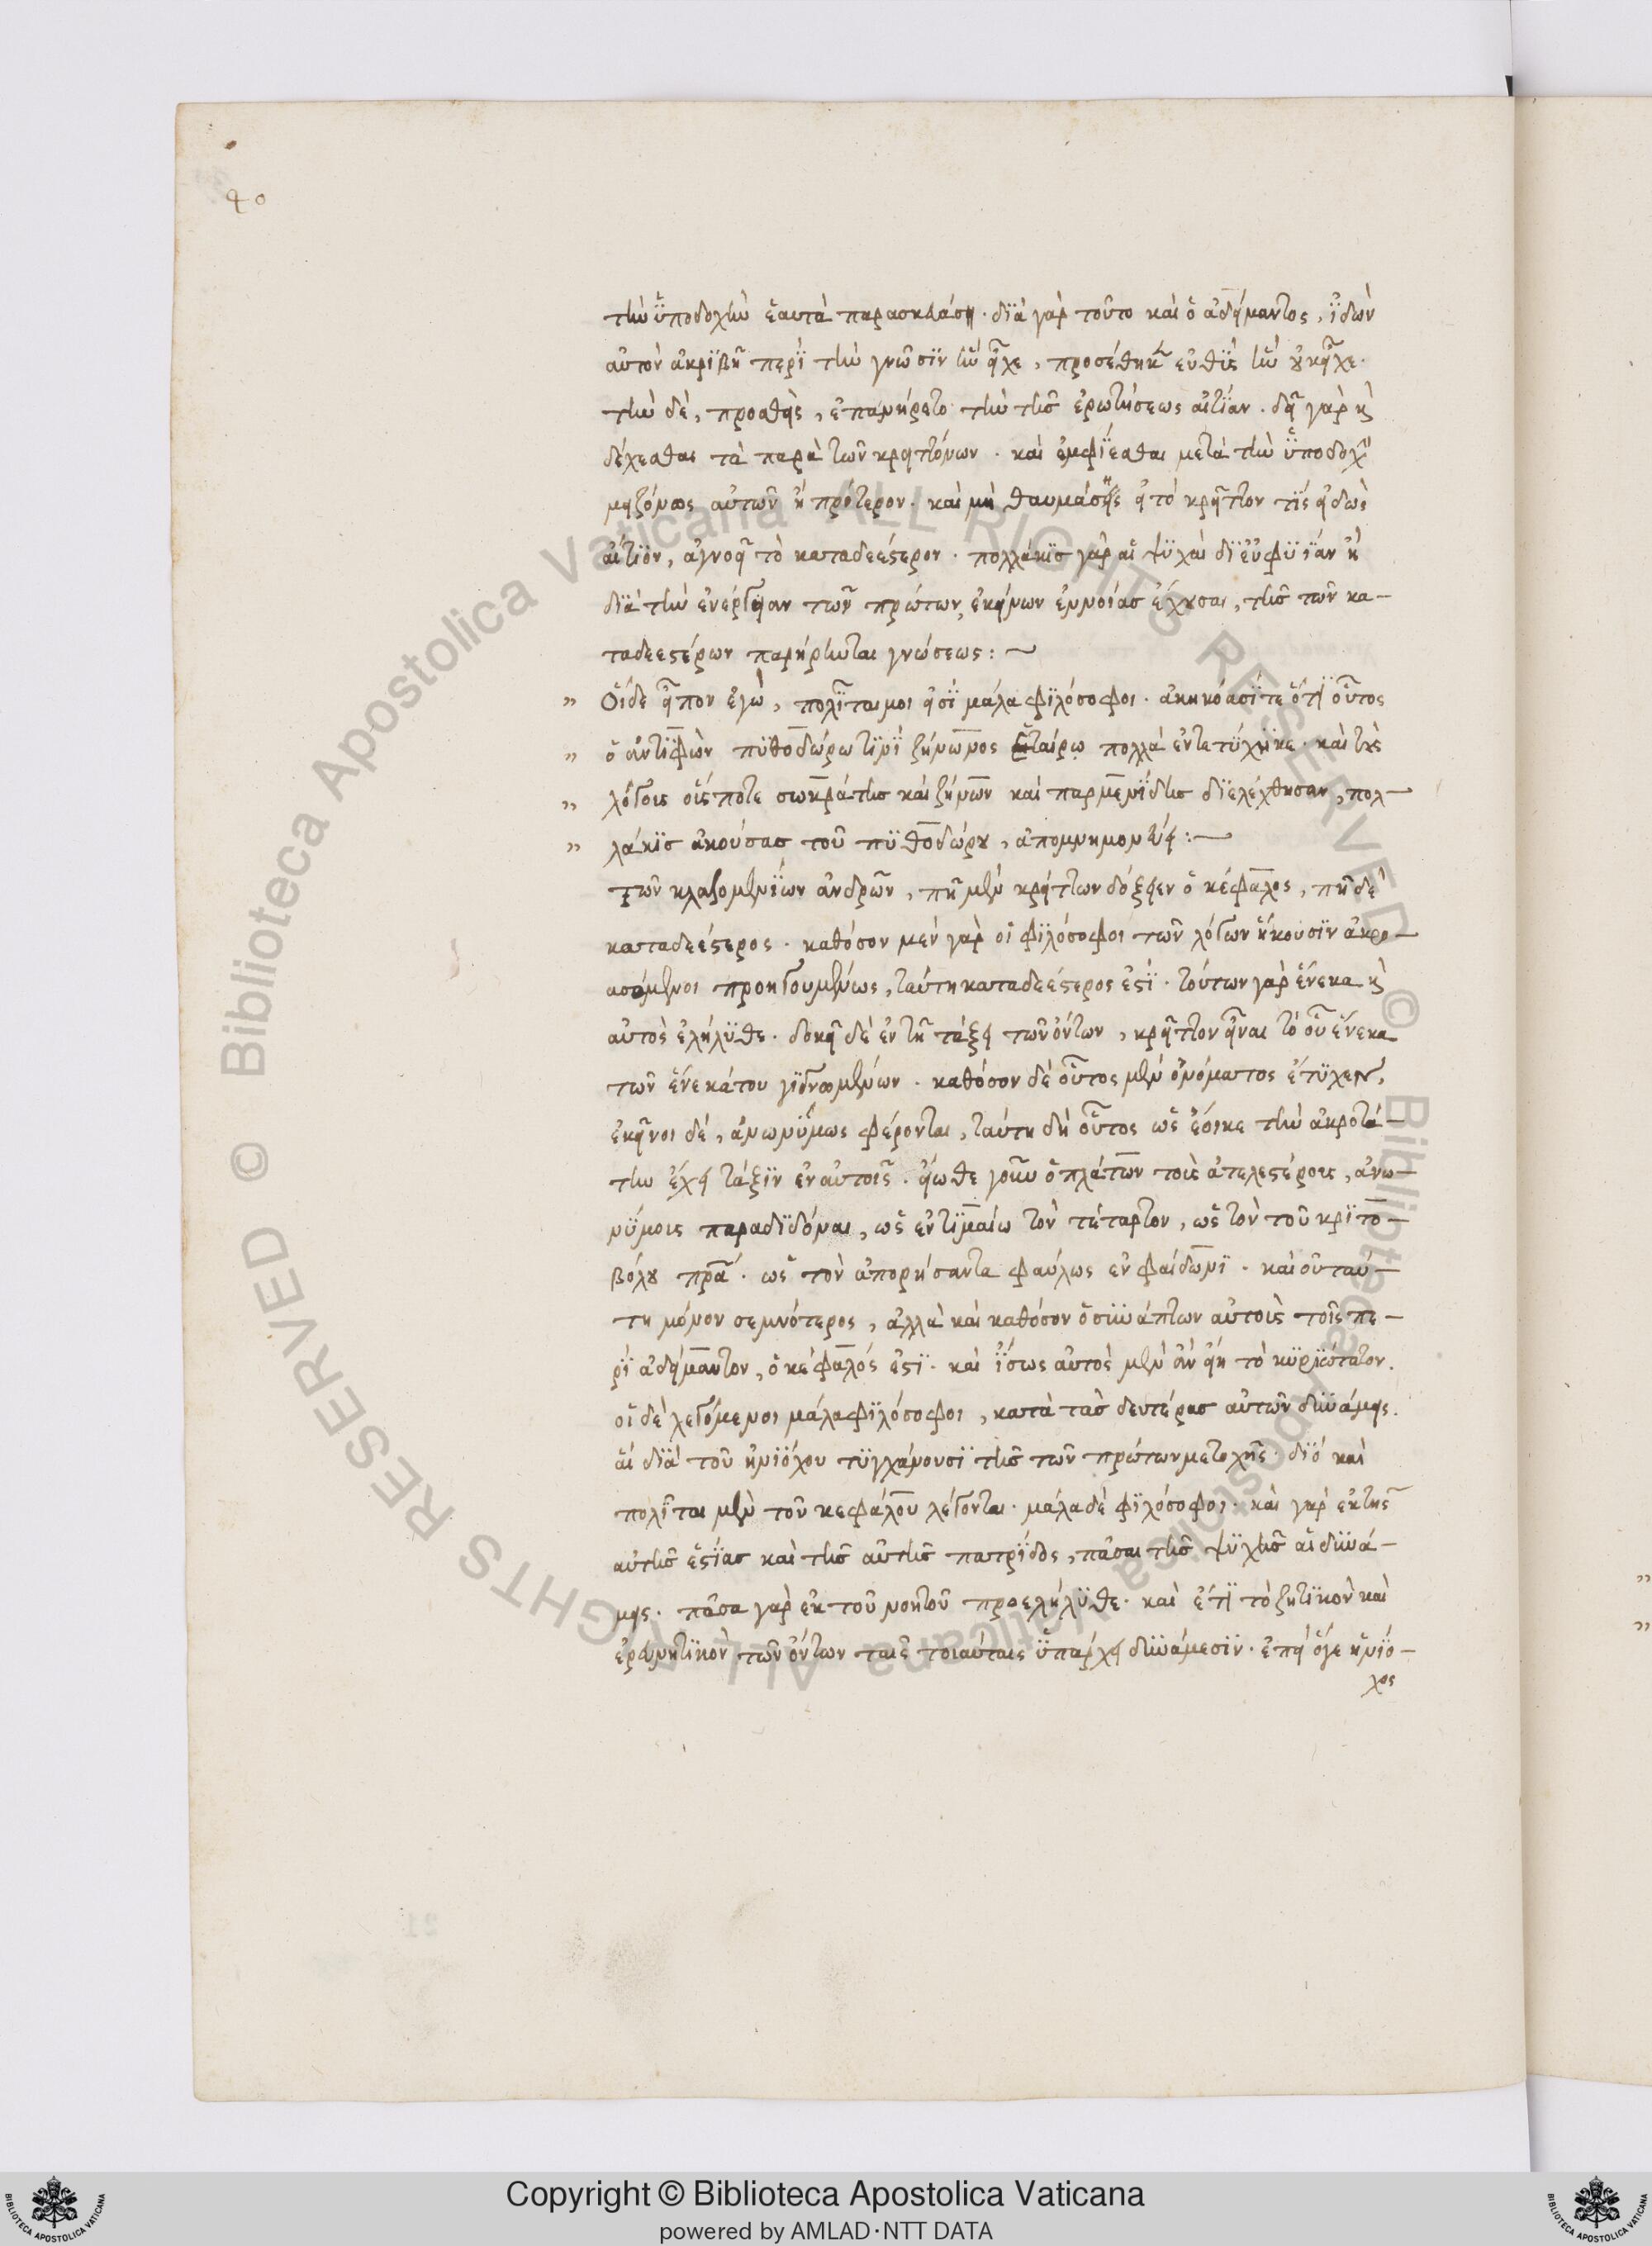 40
τὴν ὑποδοχὴν ἑαυτὰ παρασκευάσῃ. διὰ γὰρ τοῦτο καὶ ὁ ἀδείμαντος, ἰδὼν
αὐτὸν ἀκριβῆ περὶ τὴν γνῶσιν ἣν εἶχε, προσέθηκεν εὐθὺς ἣν οὐκ εἶχε.
τὴν δὲ, προσθεὶς, ἐπανήρετο τὴν τῆς ἐρωτήσεως αἰτίαν. δεῖ γὰρ καὶ
δέχεσθαι τὰ παρὰ τῶν κρειττόνων. καὶ ἐμφίεσθαι μετὰ τὴν ὑποδοχὴν
μειζόνως αὐτῶν ἢ πρότερον. καὶ μὴ θαυμάσῃς εἰ τὸ κρεῖττον τῆς εἰδὼς
αἴτιον, ἀγνοεῖ τὸ καταδεέστερον. πολλάκις γὰρ αἱ ψυχαὶ δι' εὐφυΐαν ἢ
διὰ τὴν ἐνέργειαν τῶν πρώτων, ἐκείνων ἐννοίας ἔχουσαι, τῆς τῶν κα-
ταδεεστέρων παρήρηνται γνώσεως:
" Οἵδε εἶπον ἐγὼ, πολῖταί μοι εἰσὶ μάλα φιλόσοφοι. ἀκηκόασί τε ὅτι οὗτος
" ὁ ἀντιφῶν πυθοδώρω τινὶ ζήνωνος ἑταίρω πολλὰ ἐντετύχηκε. καὶ τοὺς
" λόγους οὕς ποτε σωκράτης καὶ ζήνων καὶ παρμενίδης διελέχθησαν, πολ-
" λάκις ἀκούσας τοῦ πυθοδώρου, ἀπομνημονεύει:
Τῶν κλαζομενίων ἀνδρῶν, πῆ μὲν κρείττων δόξειεν ὁ κέφαλος, πῆ δὲ
καταδεέστερος. καθόσον μὲν γὰρ οἱ φιλόσοφοι τῶν λόγων ἥκουσιν ἀκρο-
ασόμενοι προηγουμένως, ταύτη καταδεέστερος ἐστί. τούτων γὰρ ἕνεκα καὶ
αὐτὸς ἐλήλυθε. δοκεῖ δὲ ἐν τῆ τάξει τῶν ὄντων, κρεῖττον εἶναι τὸ οὗ ἕνεκα
τῶν ἕνεκά του γιγνομένων. καθόσον δὲ οὗτος μὲν ὀνόματος ἔτυχεν,
ἐκεῖνοι δὲ, ἀνωνύμως φέρονται, ταύτη δὴ οὗτος ὡς ἔοικε τὴν ἀκροτά-
την ἔχει τάξιν ἐν αὐτοῖς. εἴωθε γοῦν ὁ πλάτων τοὺς ἀτελεστέρους, ἀνω-
νύμους παραδιδόναι, ὡς ἐν τιμαίω τὸν τέταρτον, ὡς τὸν τοῦ κριτο-
βόλου πρα. ὡς τὸν ἀπορήσαντα φαύλως ἐν φαίδωνι. καὶ οὐ ταύ-
τη μόνον σεμνότερος, ἀλλὰ καὶ καθόσον ὁ συνάπτων αὐτοὺς τοῖς πε-
ρὶ ἀδείμαντον, ὁ κέφαλός ἐστι. καὶ ἴσως αὐτὸς μὲν ἂν εἴη τὸ κυριώτατον.
οἱ δὲ λεγόμενοι μάλα φιλόσοφοι, κατὰ τὰς δευτέρας αὐτῶν δυνάμεις.
αἳ διὰ τοῦ ἡνιόχου τυγχάνουσι τῆς τῶν πρώτων μετοχῆς. διό καὶ
πολῖται μὲν τοῦ κεφάλου λέγονται. μάλα δὲ φιλόσοφοι. καὶ γὰρ ἐκ τῆς
αὐτῆς ἑστίας καὶ τῆς αὐτῆς πατρίδος, πᾶσαι τῆς ψυχῆς αἱ δυνά-
μεις. πᾶσα γὰρ ἐκ τοῦ νοητοῦ προελήλυθε. καὶ ἔτι τὸ ζητικὸν καὶ
ἐρευνητικὸν τῶν ὄντων ταῖς τοιαύταις ὑπάρχει δυνάμεσιν. ἐπεὶ ὅγε ἡνίο-
χος
© Biblioteca Apostolica Vaticana ALL RIGHTS RESERVED
© Biblioteca Apostolica Vaticana ALL RIGHTS RESERVED
Copyright © Biblioteca Apostolica Vaticana
powered by AMLAD·NTT DATA
BIBLIOTECA APOSTOLICA VATICANA
BIBLIOTECA APOSTOLICA VATICANA